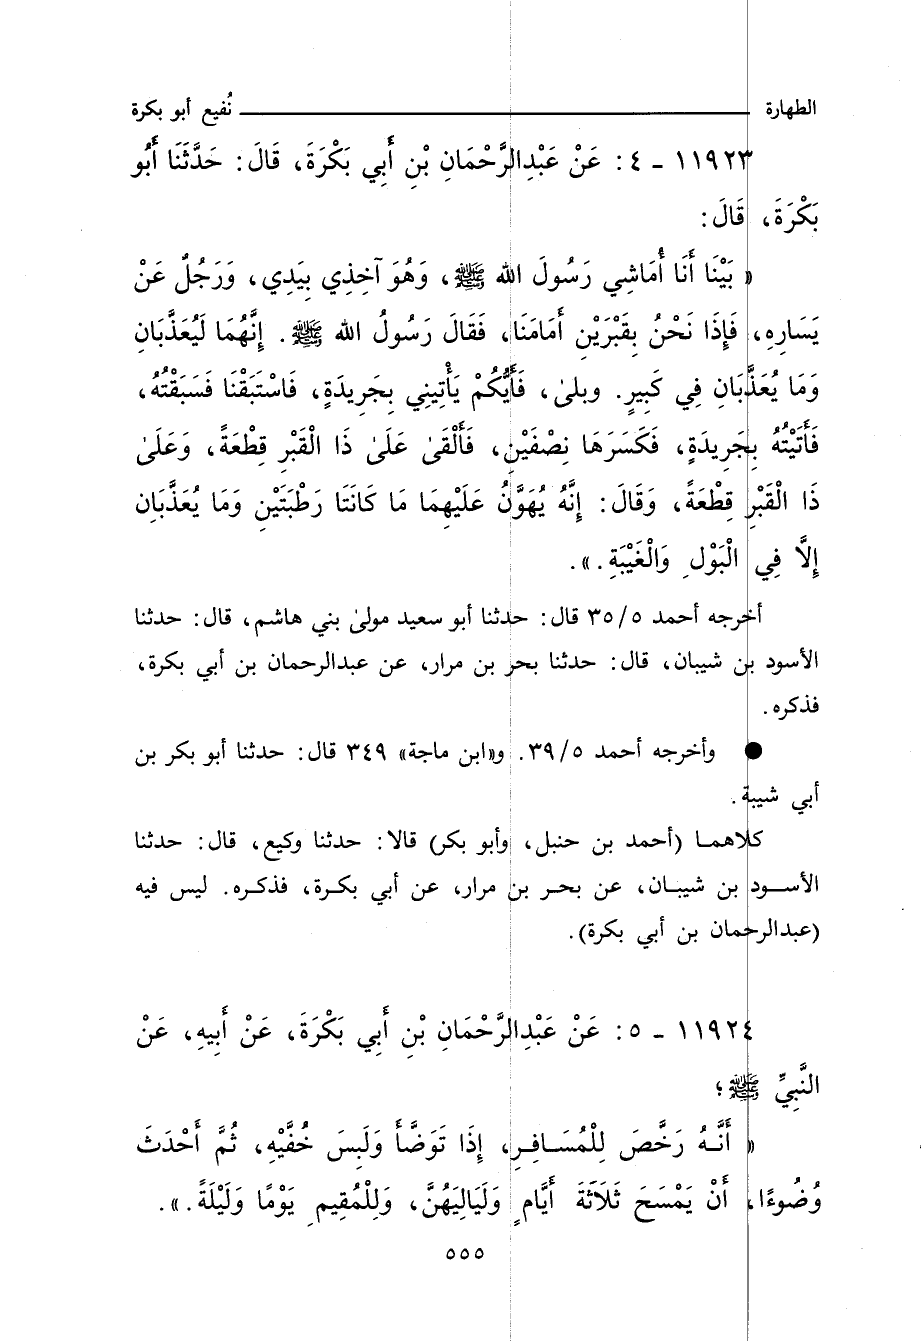 الطهارة نُفيع أبو بكرة
١١٩٢٣ ـ ٤ : عَنْ عَبْدِالرَّحْمَانِ بْنِ أَبِي بَكْرَةَ، قَالَ: حَدَّثَنَا أَبُو
بَكْرَةَ، قَالَ:
« بَيْنَا أَنَا أُمَاشِي رَسُولَ الله ﷺ، وَهُوَ آخِذِي بِيَدِي، وَرَجُلٌ عَنْ
يَسَارِهِ، فَإِذَا نَحْنُ بِقَبْرَيْنِ أَمَامَنَا، فَقَالَ رَسُولُ الله ﷺ. إِنَّهُمَا لَيُعَذَّبَانِ
وَمَا يُعَذَّبَانِ فِي كَبِيرٍ. وبلىٰ، فَأَيُّكُمْ يَأْتِينِي بِجَرِيدَةٍ، فَاسْتَبَقْنَا فَسَبَقْتُهُ،
فَأَتَيْتُهُ بِجَرِيدَةٍ، فَكَسَرَهَا نِصْفَيْنِ، فَأَلْقَىٰ عَلَىٰ ذَا الْقَبْرِ قِطْعَةً، وَعَلَىٰ
ذَا الْقَبْرِ قِطْعَةً، وَقَالَ: إِنَّهُ يُهَوَّنُ عَلَيْهِمَا مَا كَانَتَا رَطْبَتَيْنِ وَمَا يُعَذَّبَانِ
إِلَّا فِي الْبَوْلِ وَالْغَيْبَةِ.».
أخرجه أحمد ٣٥/٥ قال: حدثنا أبو سعيد مولىٰ بني هاشم، قال: حدثنا
الأسود بن شيبان، قال: حدثنا بحر بن مرار، عن عبدالرحمان بن أبي بكرة،
فذكره.
● وأخرجه أحمد ٣٩/٥. و«ابن ماجة» ٣٤٩ قال: حدثنا أبو بكر بن
أبي شيبة.
كلاهما (أحمد بن حنبل، وأبو بكر) قالا: حدثنا وكيع، قال: حدثنا
الأسود بن شيبان، عن بحر بن مرار، عن أبي بكرة، فذكره. ليس فيه
(عبدالرحمان بن أبي بكرة).
١١٩٢٤ ـ ٥ : عَنْ عَبْدِالرَّحْمَانِ بْنِ أَبِي بَكْرَةَ، عَنْ أَبِيهِ، عَنْ
النَّبِيِّ ﷺ؛
« أَنَّهُ رَخَّصَ لِلْمُسَافِرِ، إِذَا تَوَضَّأَ وَلَبِسَ خُفَّيْهِ، ثُمَّ أَحْدَثَ
وُضُوءًا، أَنْ يَمْسَحَ ثَلَاثَةَ أَيَّامٍ وَلَيَالِيَهُنَّ، وَلِلْمُقِيمِ يَوْمًا وَلَيْلَةً.».
٥٥٥